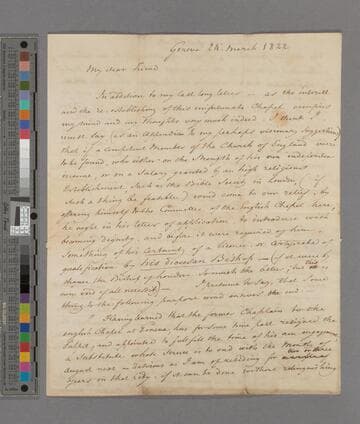 Geneva 24. March 1822
My dear Friend
In addition to my last long letter — as the interest
and the re-establishing of this unfortunate Chapel occupies
my mind and my thoughts very much indeed. I think I
must say (as an Appendix to my perhaps visionary suggestions)
that if a competent Member of the Church of England were
to be found, who either on the strength of his own independent
income, or on a Salary granted by an high religious
Establishment, such as the Bible Society in London, (if
such a thing be feasible) would come to our relief, by
offering himself to the Committee of the English Chapel here,
he ought in his letters of application to introduce with
becoming dignity, and as if it were required of him —
Something of his
qualification — of his diocesan Bishop — (if it were by
chance, the Bishop of London so much the better; but this
any way of all needful) — I presume to say, that some
thing to the following purport would answer the end —
"Having learned that the former Chaplain to the
English Chapel at Geneva, has for some time past resigned the
Pulpit, and appointed to fulfill the time of his own engagement
a Substitute whose service is to end with the month of
August next — desirous as I am of residing for two or three
years in that City, if it can be done without relinquishing